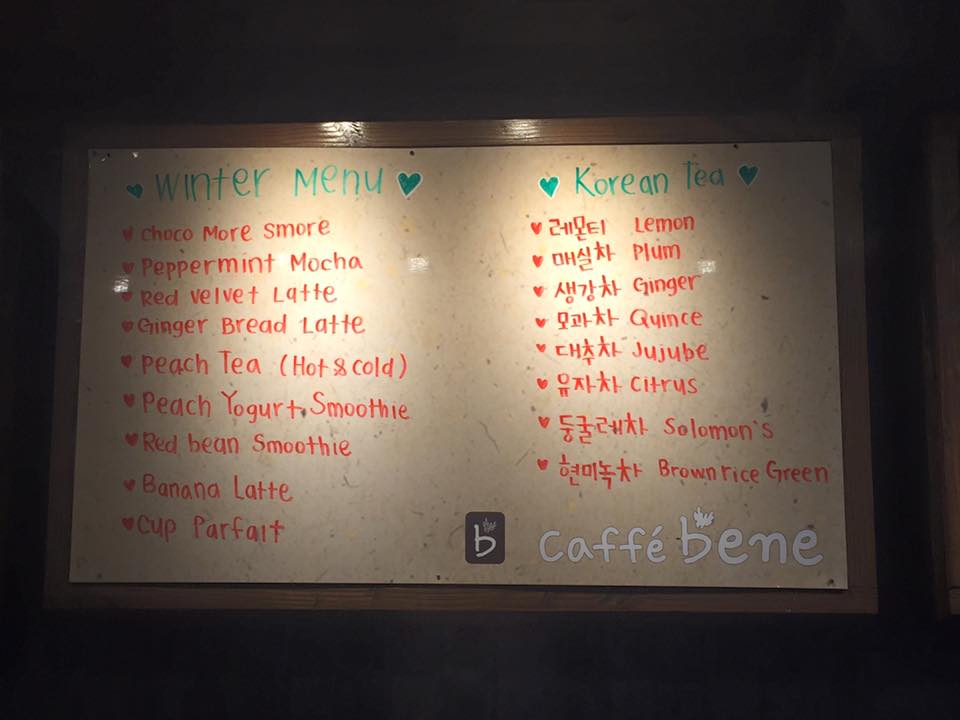 Winter Menu
choco More Smore
Peppermint Mocha
Red Velvet Latte
Ginger Bread Latte
Peach Tea (Hot & cold)
Peach Yogurt Smoothie
Red bean Smoothie
Banana Latte
Cup Parfait
Korean Tea
레몬티 Lemon
매실차 Plum
생강차 Ginger
모과차 Quince
대추차 Jujube
유자차 Citrus
둥굴레차 Solomon's
현미녹차 Brown rice Green
b
Caffé bene